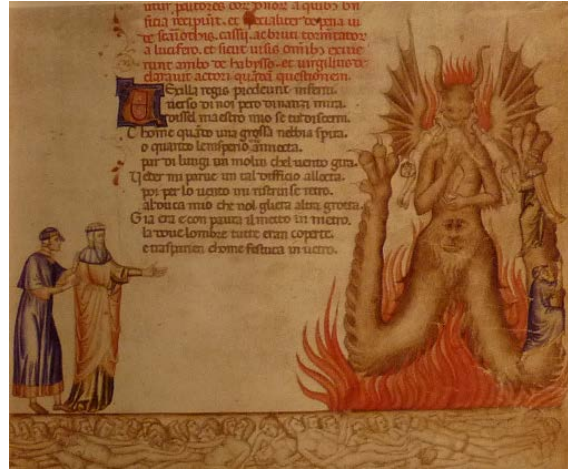 ficia recipiunt. et specialiter de pena iu
de scariothis. cassii. ac bruti tormentatorum
a lucifero. et sicut uisis omnibus exiue
runt ambo de habysso. et uirgilius de
clarauit actori quandam questionem.
Vexilla regis prodeunt inferni.
uerso di noi pero dinanzi mira.
disse l maestro mio se tu discerni.
Chome quando una grossa nebbia spira.
o quando lemisperio annocta.
par di lungi un molin chel uento gira.
ueder mi parue un tal difficio allocta.
poi per lo uento mi ristrinse retro.
al duca mio che nol gliera altra grocta.
Gia era e con paura il metto in metro.
la doue lombre tutte eran coperte.
e trasparien chome festuca in uetro.